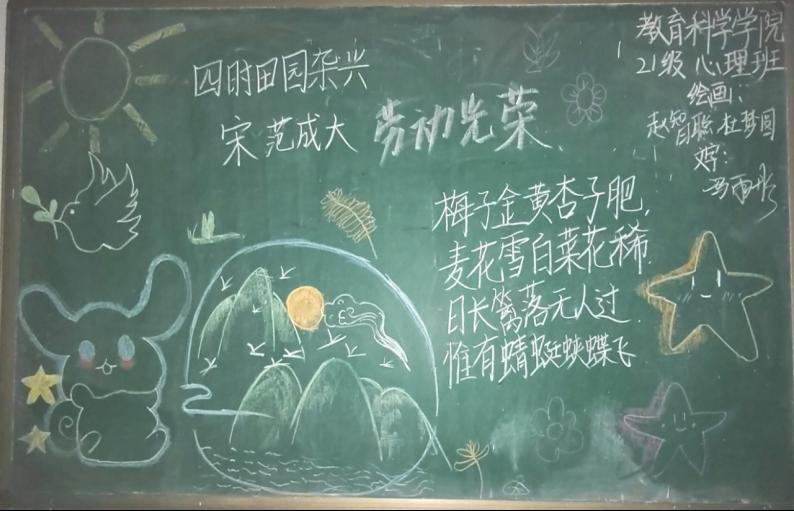 四时田园杂兴
宋 范成大
劳动光荣
梅子金黄杏子肥,
麦花雪白菜花稀.
日长篱落无人过.
惟有蜻蜓蛱蝶飞
教育科学学院
21级 心理班
绘画:
赵智聪 杜梦圆
字:
冯雨彤